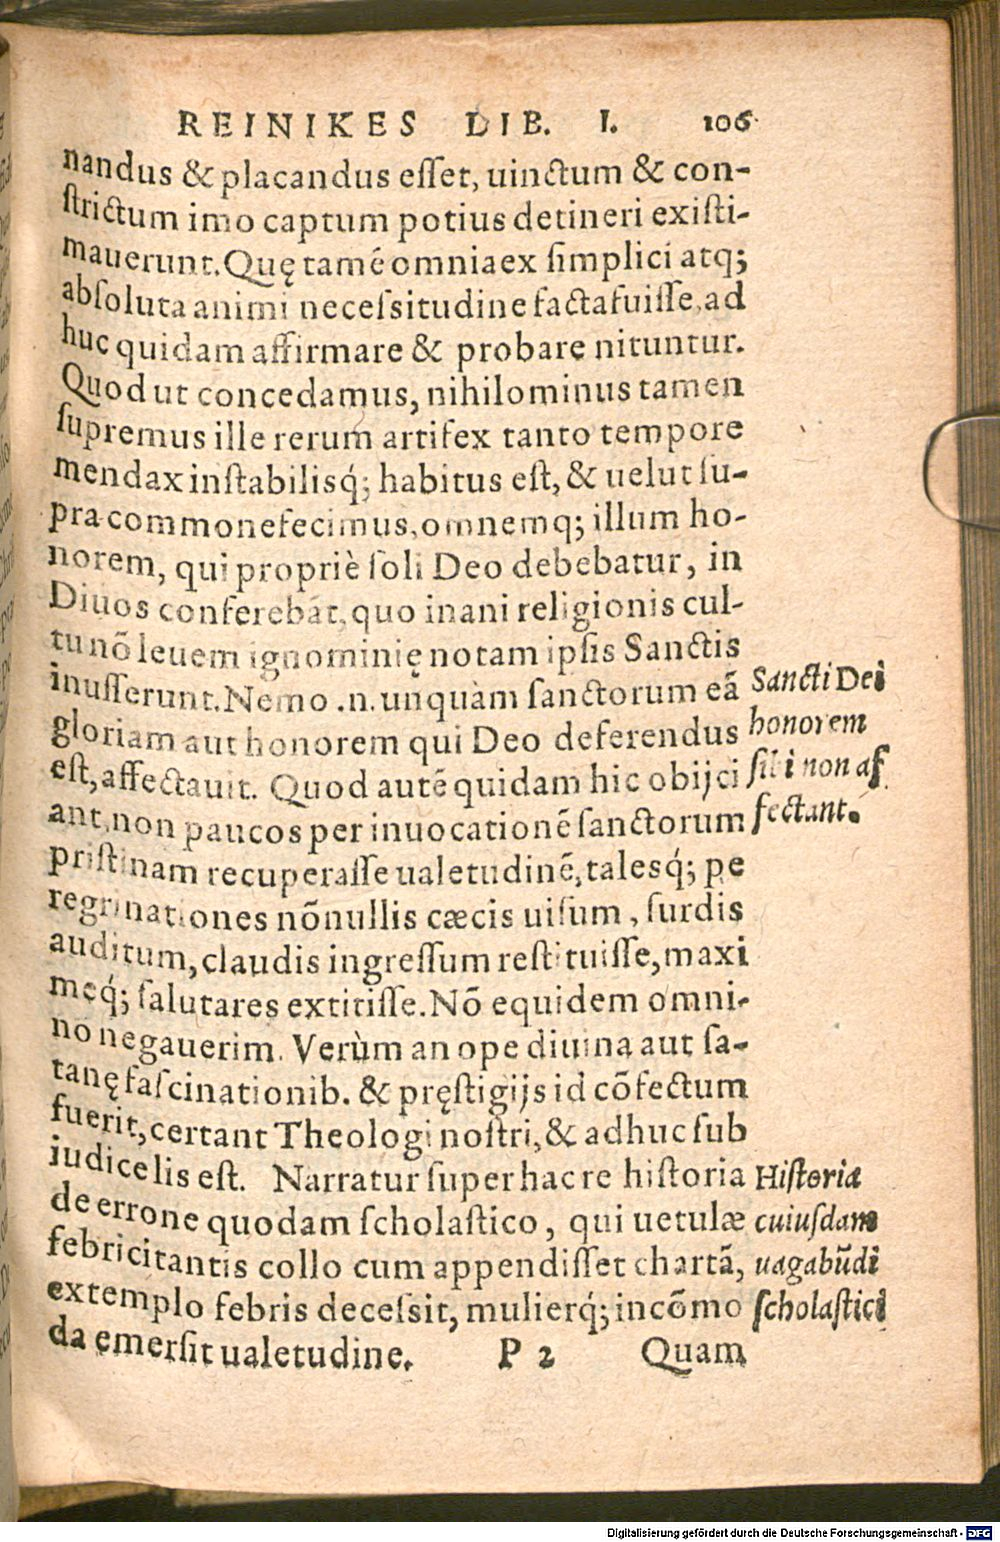 REINIKES LIB. I. 106
nandus & placandus esset, uinctum & con-
strictum imo captum potius detineri existi-
mauerunt. Quę tamē omnia ex simplici atq;
absoluta animi necessitudine facta fuisse, ad
huc quidam affirmare & probare nituntur.
Quod ut concedamus, nihilominus tamen
supremus ille rerum artifex tanto tempore
mendax instabilisq́; habitus est, & uelut su-
pra commonefecimus, omnemq; illum ho-
norem, qui propriè soli Deo debebatur, in
Diuos conferebāt, quo inani religionis cul-
tu nō leuem ignominię notam ipsis Sanctis
inusserunt. Nemo .n. unquàm sanctorum eā
gloriam aut honorem qui Deo deferendus
est, affectauit. Quod autē quidam hic obijci
ant, non paucos per inuocationē sanctorum
pristinam recuperasse ualetudinē, talesq́; pe
regrinationes nōnullis cæcis uisum, surdis
auditum, claudis ingressum restituisse, maxi
meq́; salutares extitisse. Nō equidem omni-
no negauerim. Verùm an ope diuina aut sa-
tanę fascinationib. & pręstigijs id cōfectum
fuerit, certant Theologi nostri, & adhuc sub
iudice lis est. Narratur super hac re historia
de errone quodam scholastico, qui uetulæ
febricitantis collo cum appendisset chartā,
extemplo febris decessit, mulierq́; incōmo
da emersit ualetudine.
P 2 Quam
Sancti Dei
honorem
sibi non af
fectant.
Historia
cuiusdam
uagabūdi
scholastici
Digitalisierung gefördert durch die Deutsche Forschungsgemeinschaft - DFG